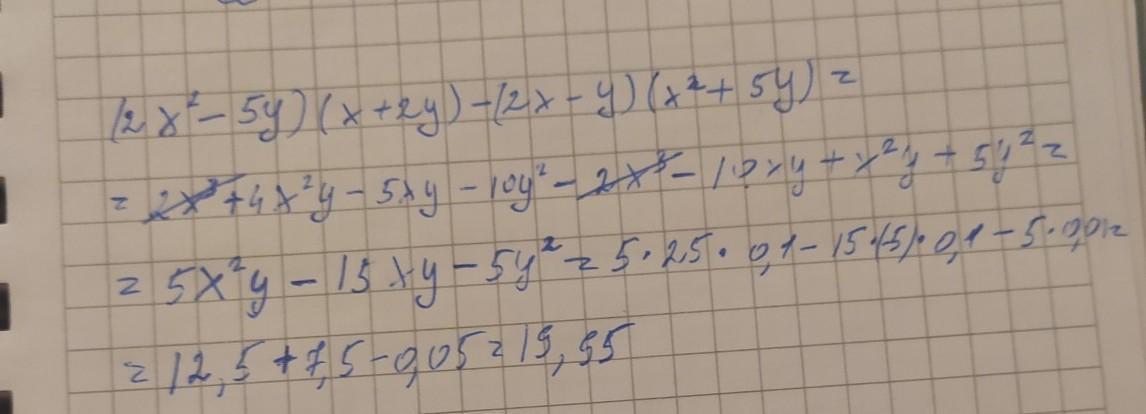 (2x² - 5y)(x + 2y) - (2x - y)(x² + 5y) =
= 2x³ + 4x²y - 5xy - 10y² - 2x³ - 10xy + x²y + 5y² =
= 5x²y - 15xy - 5y² = 5 · 25 · 0,1 - 15 · (-5) · 0,1 - 5 · 0,01 =
= 12,5 + 7,5 - 0,05 = 19,95